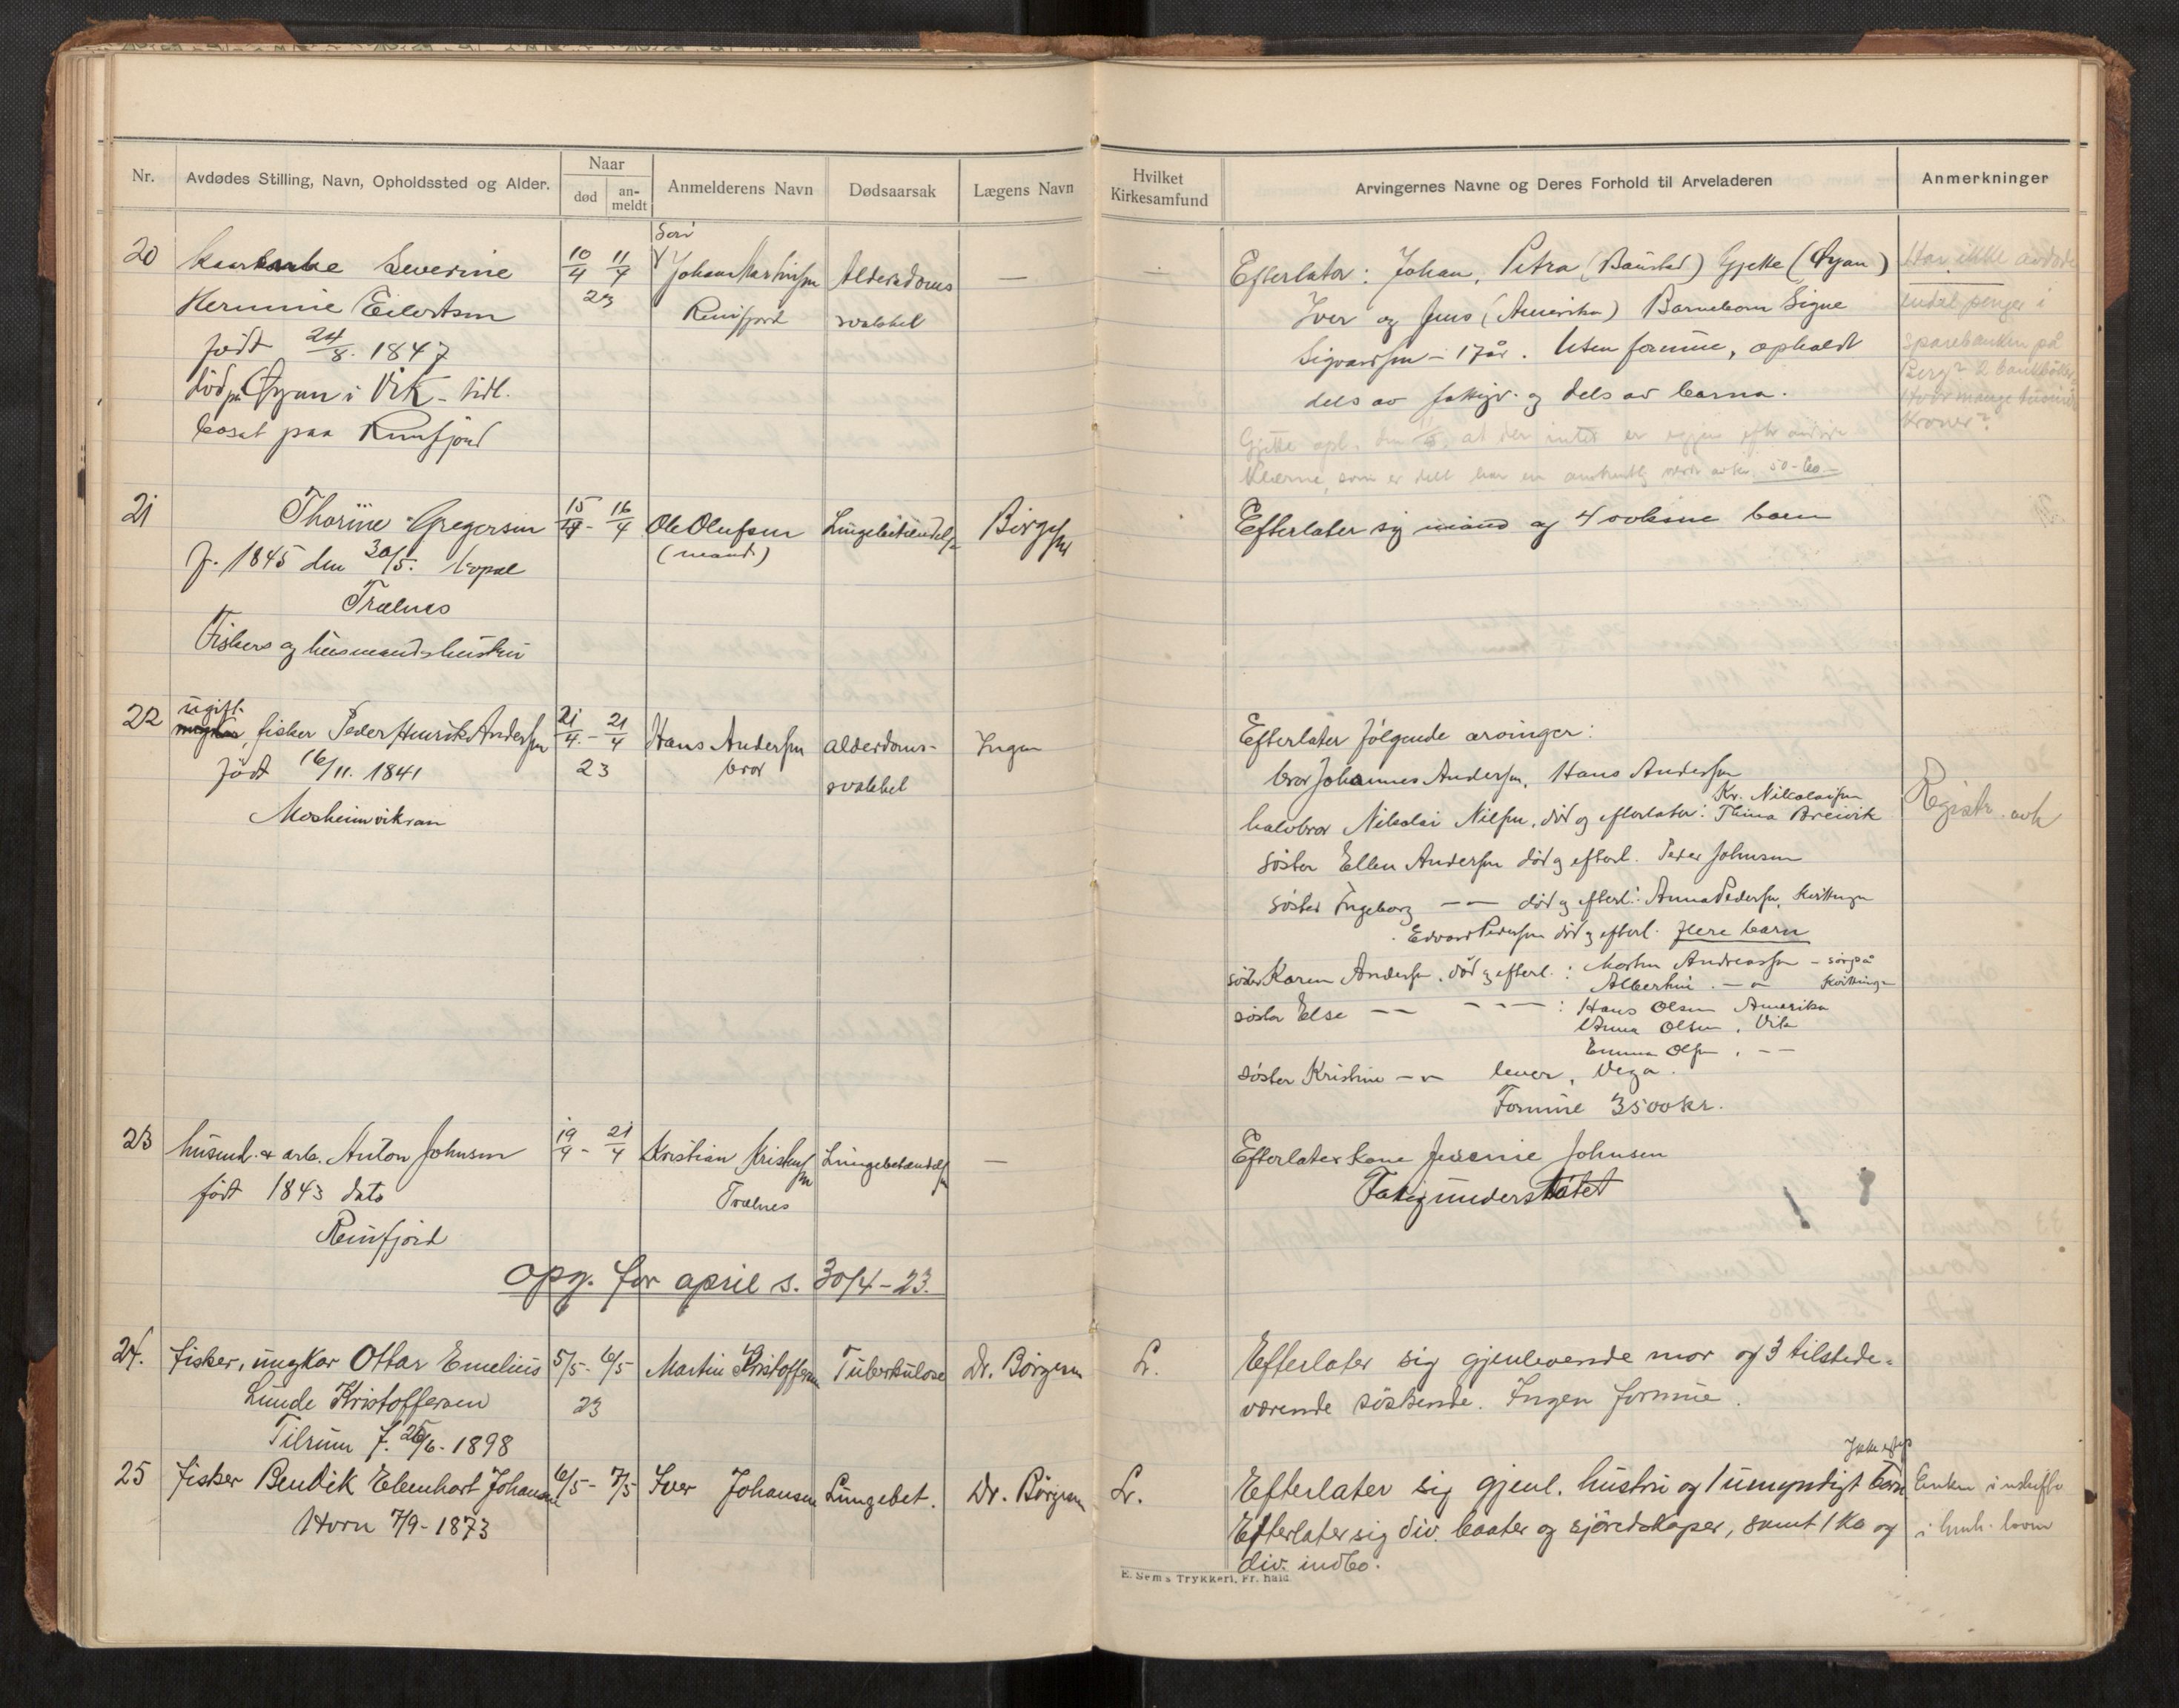 Nr.
Avdødes Stilling, Navn, Opholdssted og Alder.
Naar
død
an-
meldt
Anmelderens Navn
Dødsaarsak
Lægens Navn
Hvilket
Kirkesamfund
Arvingernes Navne og Deres Forhold til Arveladeren
Anmerkninger
20
Severine
Eilertsen
født 24/8. 1847
død på Øyan i Vik - tidl.
bosat paa Reinfjord
10/4 11/4
23
Johan Martinsen
Reinfjord
Alderdoms
svakhet
—
Efterlater: Johan, Petra (Baustad) Gjette (Øyan)
Iver og Jens (Amerika) Barnebarn Signe
Sigvardsen - 17 år. Uten formue, opholdt
dels av fattigv. og dels av barna.
Har ikke avdøde
endel penger i
sparebanken på
Berg? 2 bankbøker
Hvor mange tusind
kroner?
21
Thorine Gregersen
f. 1845 den 30/5.
Trælnes
Fiskers og husmandshustru
15/4 - 16/4
Ole Olufsen
(mand)
Lungebetændelse
Efterlater sig mand og 4 voksne barn
22
ugift
fisker Peder Henrik Andersen
født 16/11. 1841
21/4. - 21/4
23
Hans Andersen
bror
Alderdoms-
svakhet
Ingen
Efterlater følgende arvinger:
bror Johannes Andersen, Hans Andersen
Kr. Nikolaisen
halvbror Nikolai Nilsen, død og efterlater: Thina Breivik
søster Ellen Andersen død og efterl. Peder Johnsen
søster Ingeborg — — død og efterl.: Anna Pedersen,
Edvard Pedersen død og efterl. flere barn
søster Karen Andersen, død og efterl.: Morten Andreassen -
Albertine . — " —
søster Else — — — — — : Hans Olsen Amerika
Anna Olsen , Vik
Emma Olsen , — —
søster Kristine — " — lever, Vega.
Formue 3500 kr.
Registr.
23
husmd. & arb. Anton Johnsen
født 1843 dato
Reinfjord
19/4 - 21/4
Kristian Kristensen
Trælnes
Lungebetændelse
—
Efterlater kone Johnsen
Fattigunderstøtet
opg. for april s. 30/4 - 23.
24.
fisker, ungkar Ottar Emelius
Lunde Kristoffersen
Tilrum f. 26/6 - 1898
5/5 - 6/5
23
Martin Kristoffersen
Tuberkulose
Dr. Børgesen
Lr.
Efterlater sig gjenlevende mor og 3 tilstede-
værende søskende. Ingen formue.
25
fisker Bendik Ebenhart Johansen
Horn 7/9 - 1873
6/5 - 7/5
Iver Johansen
Lungebet.
Dr. Børgesen
Lr.
Efterlater sig gjenl. hustru og 1 umyndigt barn
Efterlater sig div. baater og sjøredskaper, samt 1 ko og
div. indbo.
Enken i uskifte
i henh. loven
E. Sems Trykkeri, Fr.hald